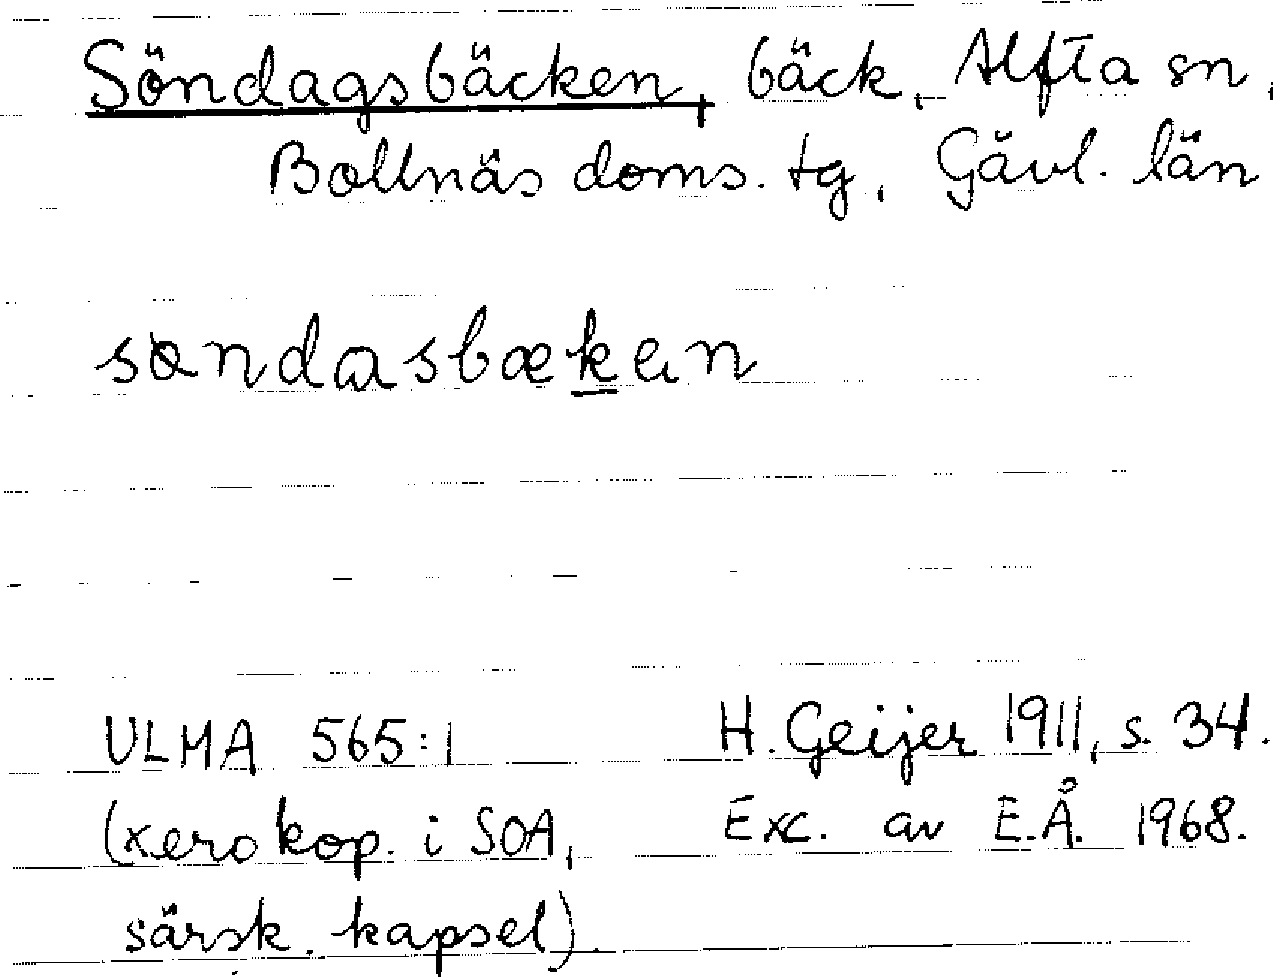 Söndagsbäcken, bäck, Alfta sn,
Bollnäs doms. tg, Gävl. län
sɵndasbæken
ULMA 565:1 H. Geijer 1911, s. 34.
(xerokop. i SOA, Exc. av E.Å. 1968.
särsk. kapsel).